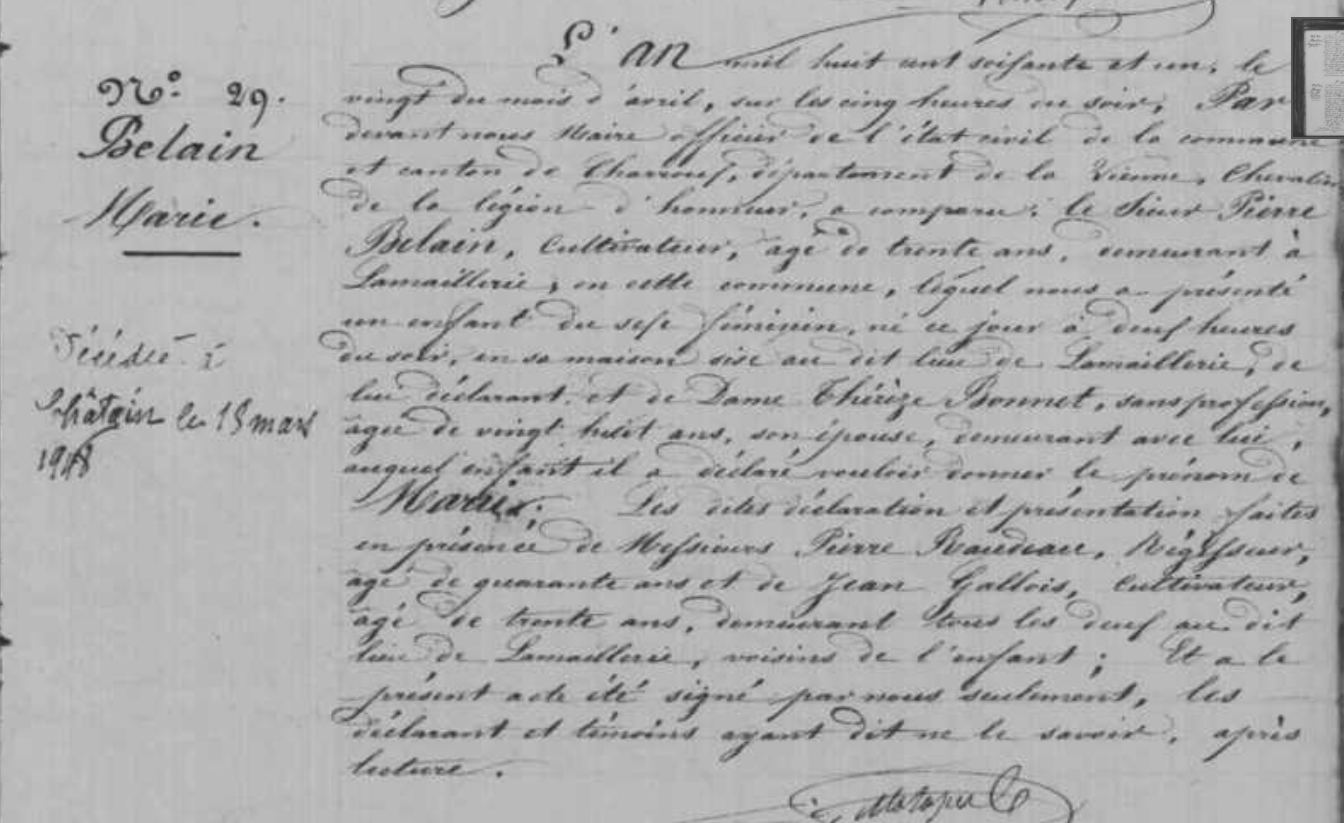 N° 29.
Belain
Marie.
Décédée à
Châtain le 18 mars
1948
L'an mil huit cent soixante et un, le
vingt du mois d'avril, sur les cinq heures du soir, Par
devant nous Maire officier de l'état civil de la commune
et canton de Charroux, département de la Vienne, Chevalier
de la légion d'honneur, a comparu: le Sieur Pierre
Belain, Cultivateur, âgé de trente ans, demeurant à
Lamaillerie, en cette commune, lequel nous a présenté
un enfant du sexe féminin, né ce jour à deux heures
du soir, en sa maison sise au dit lieu de Lamaillerie, de
lui déclarant, et de Dame Thérèze Bonnet, sans profession,
âgée de vingt huit ans, son épouse, demeurant avec lui,
auquel enfant il a déclaré vouloir donner le prénom de
Marie. Les dites déclaration et présentation faites
en présence de Messieurs Pierre Raudeau, Régisseur,
âgé de quarante ans et de Jean Gallois, Cultivateur,
âgé de trente ans, demeurant tous les deux au dit
lieu de Lamaillerie, voisins de l'enfant; Et a le
présent acte été signé par nous seulement, les
déclarant et témoins ayant dit ne le savoir, après
lecture.